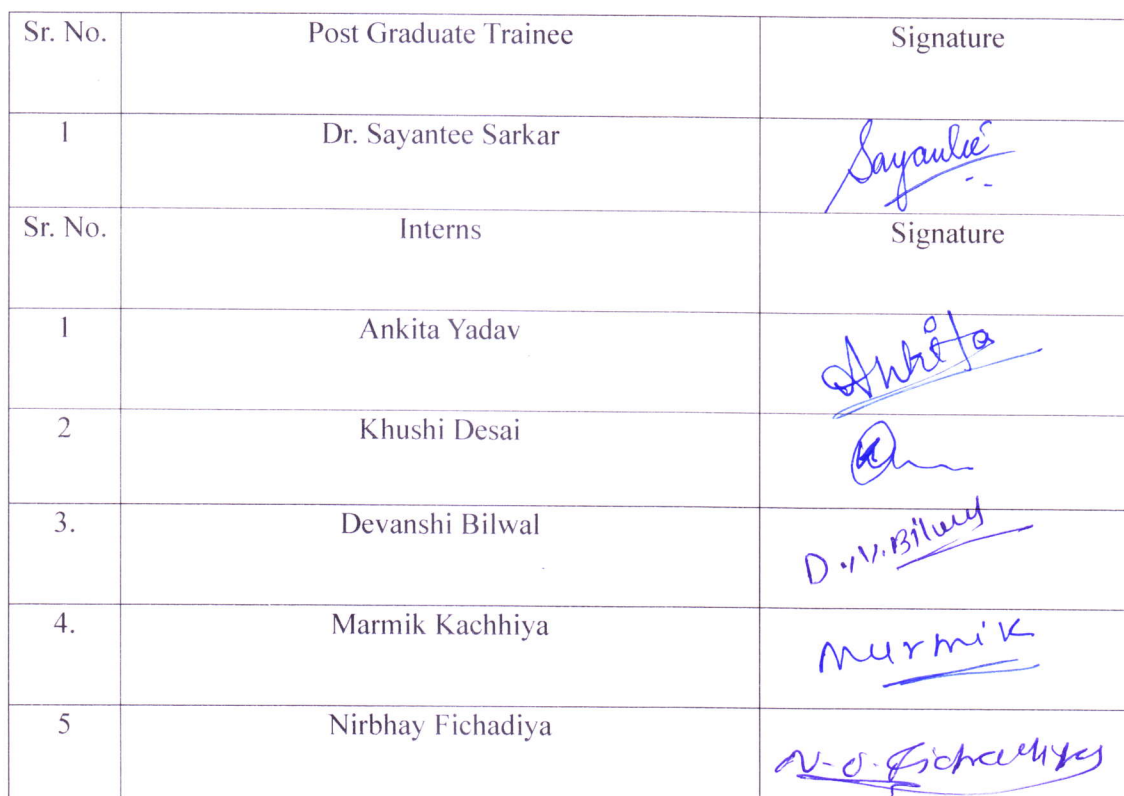 Sr. No. Post Graduate Trainee Signature
1 Dr. Sayantee Sarkar Sayantee
Sr. No. Interns Signature
1 Ankita Yadav Ankita
2 Khushi Desai
3. Devanshi Bilwal D.V.Bilwal
4. Marmik Kachhiya Marmik
5 Nirbhay Fichadiya Fichadiya